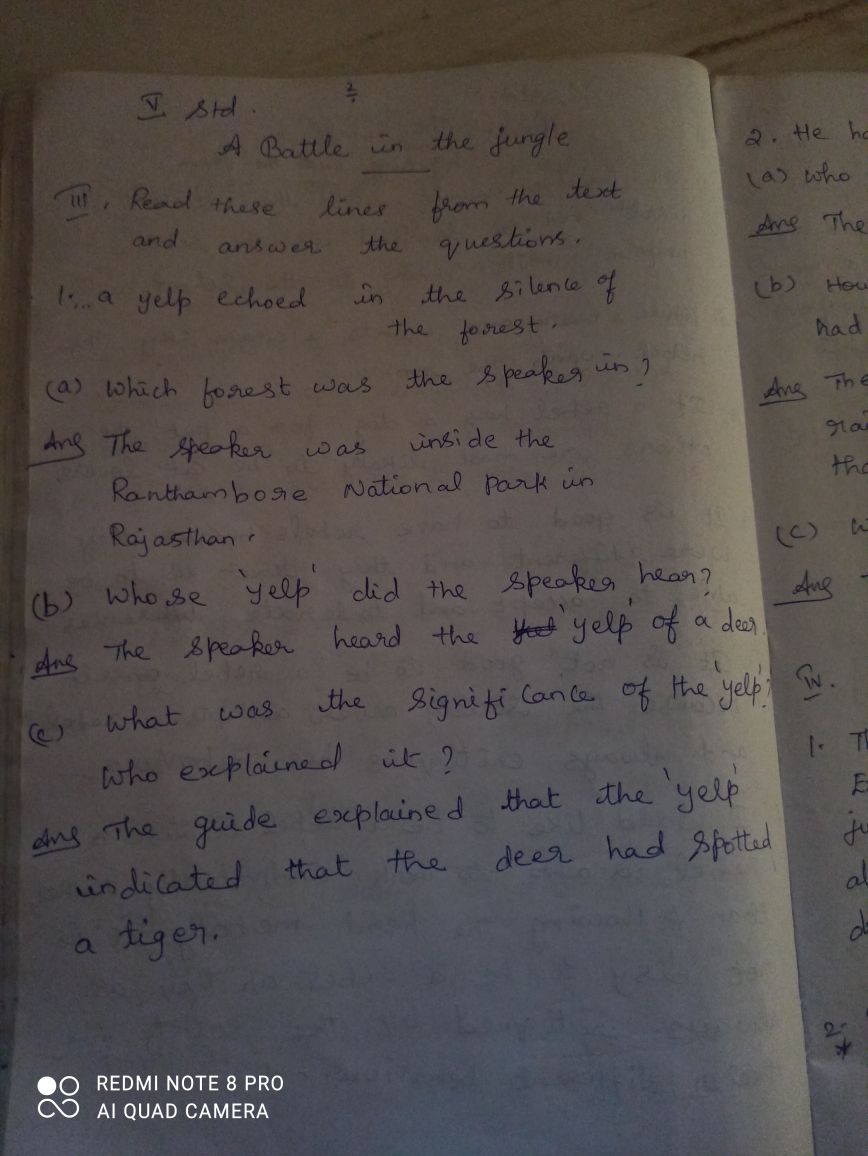 V Std.
2
A Battle in the jungle
III. Read these lines from the text
and answer the questions.
1... a yelp echoed in the silence of
the forest.
(a) Which forest was the speaker in?
Ans The speaker was inside the
Ranthambore National park in
Rajasthan.
(b) Whose 'yelp' did the speaker hear?
Ans The speaker heard the 'yelp' of a deer.
(c) What was the significance of the 'yelp'?
Who explained it?
Ans The guide explained that the 'yelp'
indicated that the deer had spotted
a tiger.
2. He
(a) who
Ans The
(b) How
had
Ans
(c)
Ans
IV.
1.
2.
REDMI NOTE 8 PRO
AI QUAD CAMERA